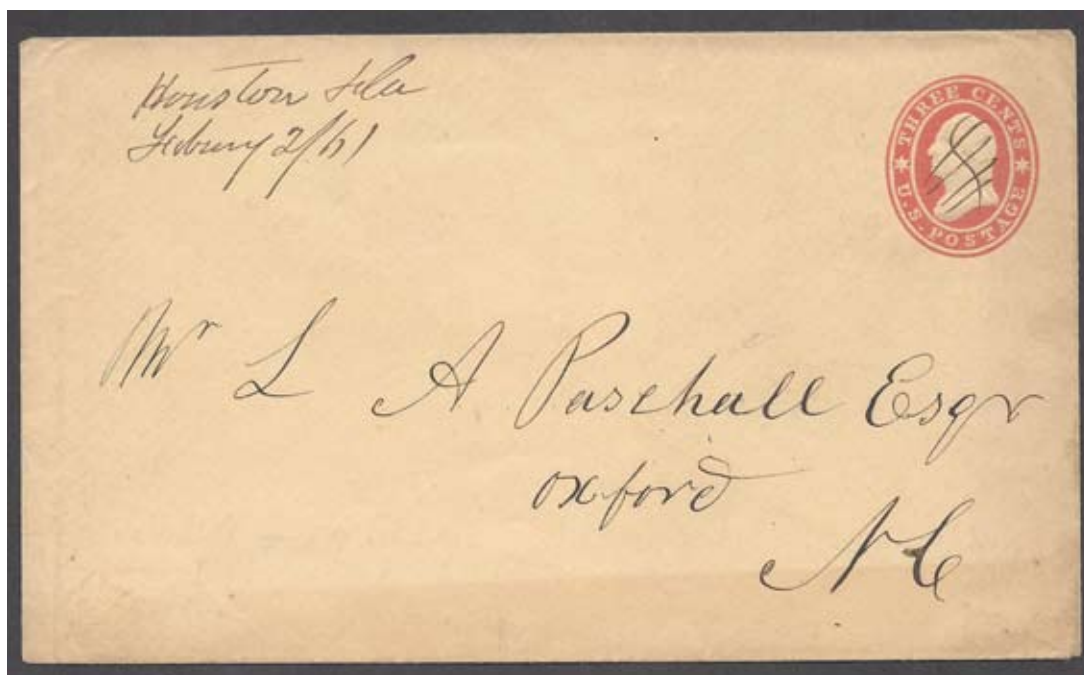 Houston Fla
Febuary 2/61
THREE CENTS
U.S. POSTAGE
Mr L A Paschall Esqr
oxford
N C